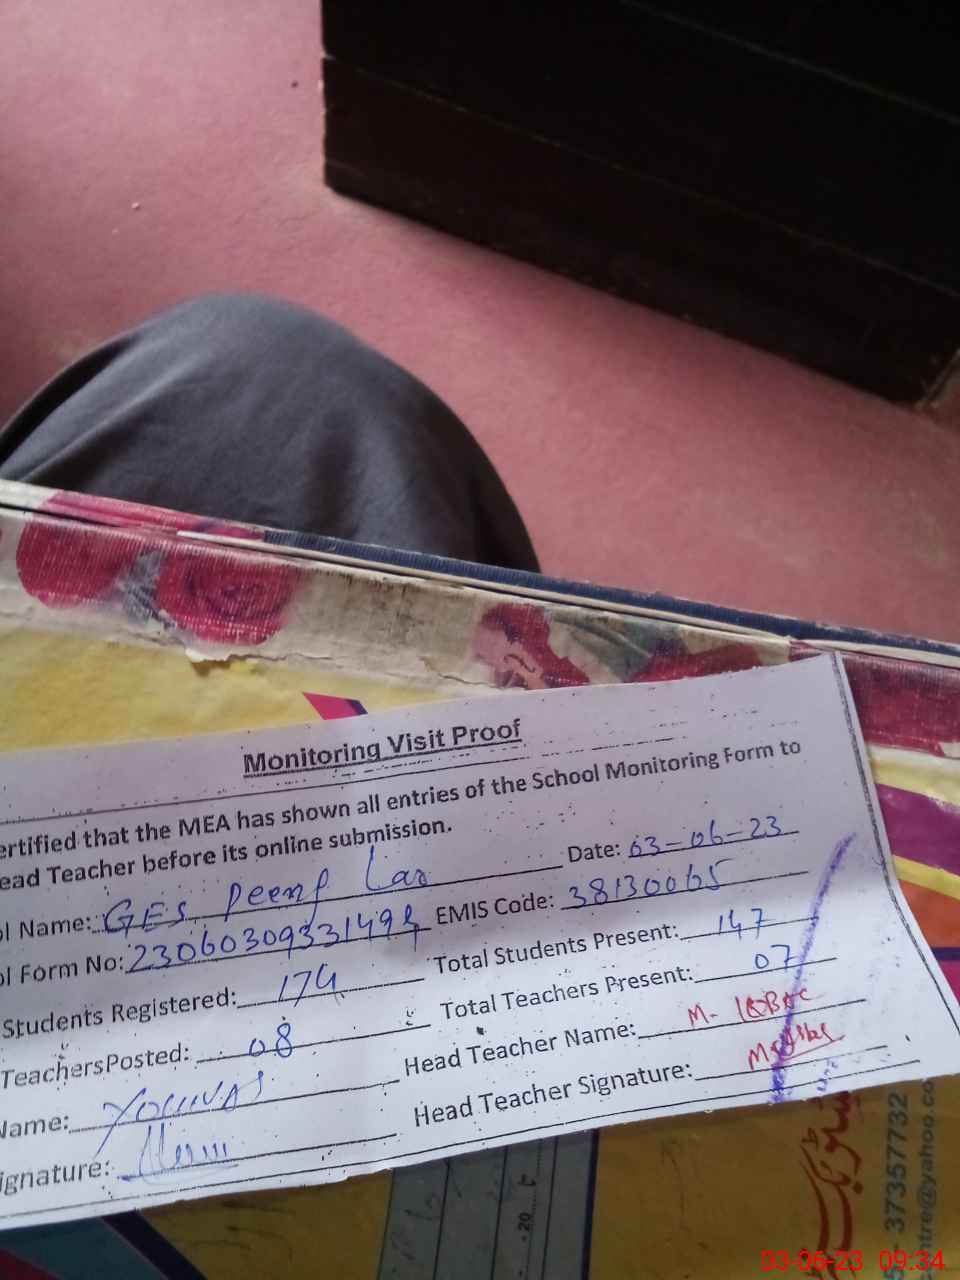 Monitoring Visit Proof
ertified that the MEA has shown all entries of the School Monitoring Form to
ead Teacher before its online submission.
ol Name: GES Deenp Lar Date: 03-06-23
ol Form No: EMIS Code: 38130065
Students Registered: 174 Total Students Present: 147
TeachersPosted: 08 Total Teachers Present: 07
Name: Head Teacher Name: M- IQBAL
ignature: Head Teacher Signature:
- 20
37357732
ntre@yahoo.co
03-06-23 09:34